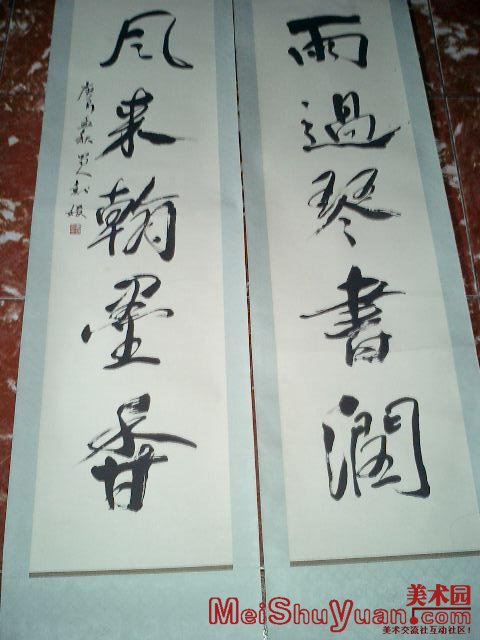 雨過琴書潤
風来翰墨香
美术园
MeiShuYuan.com
美术交流社互动社区!